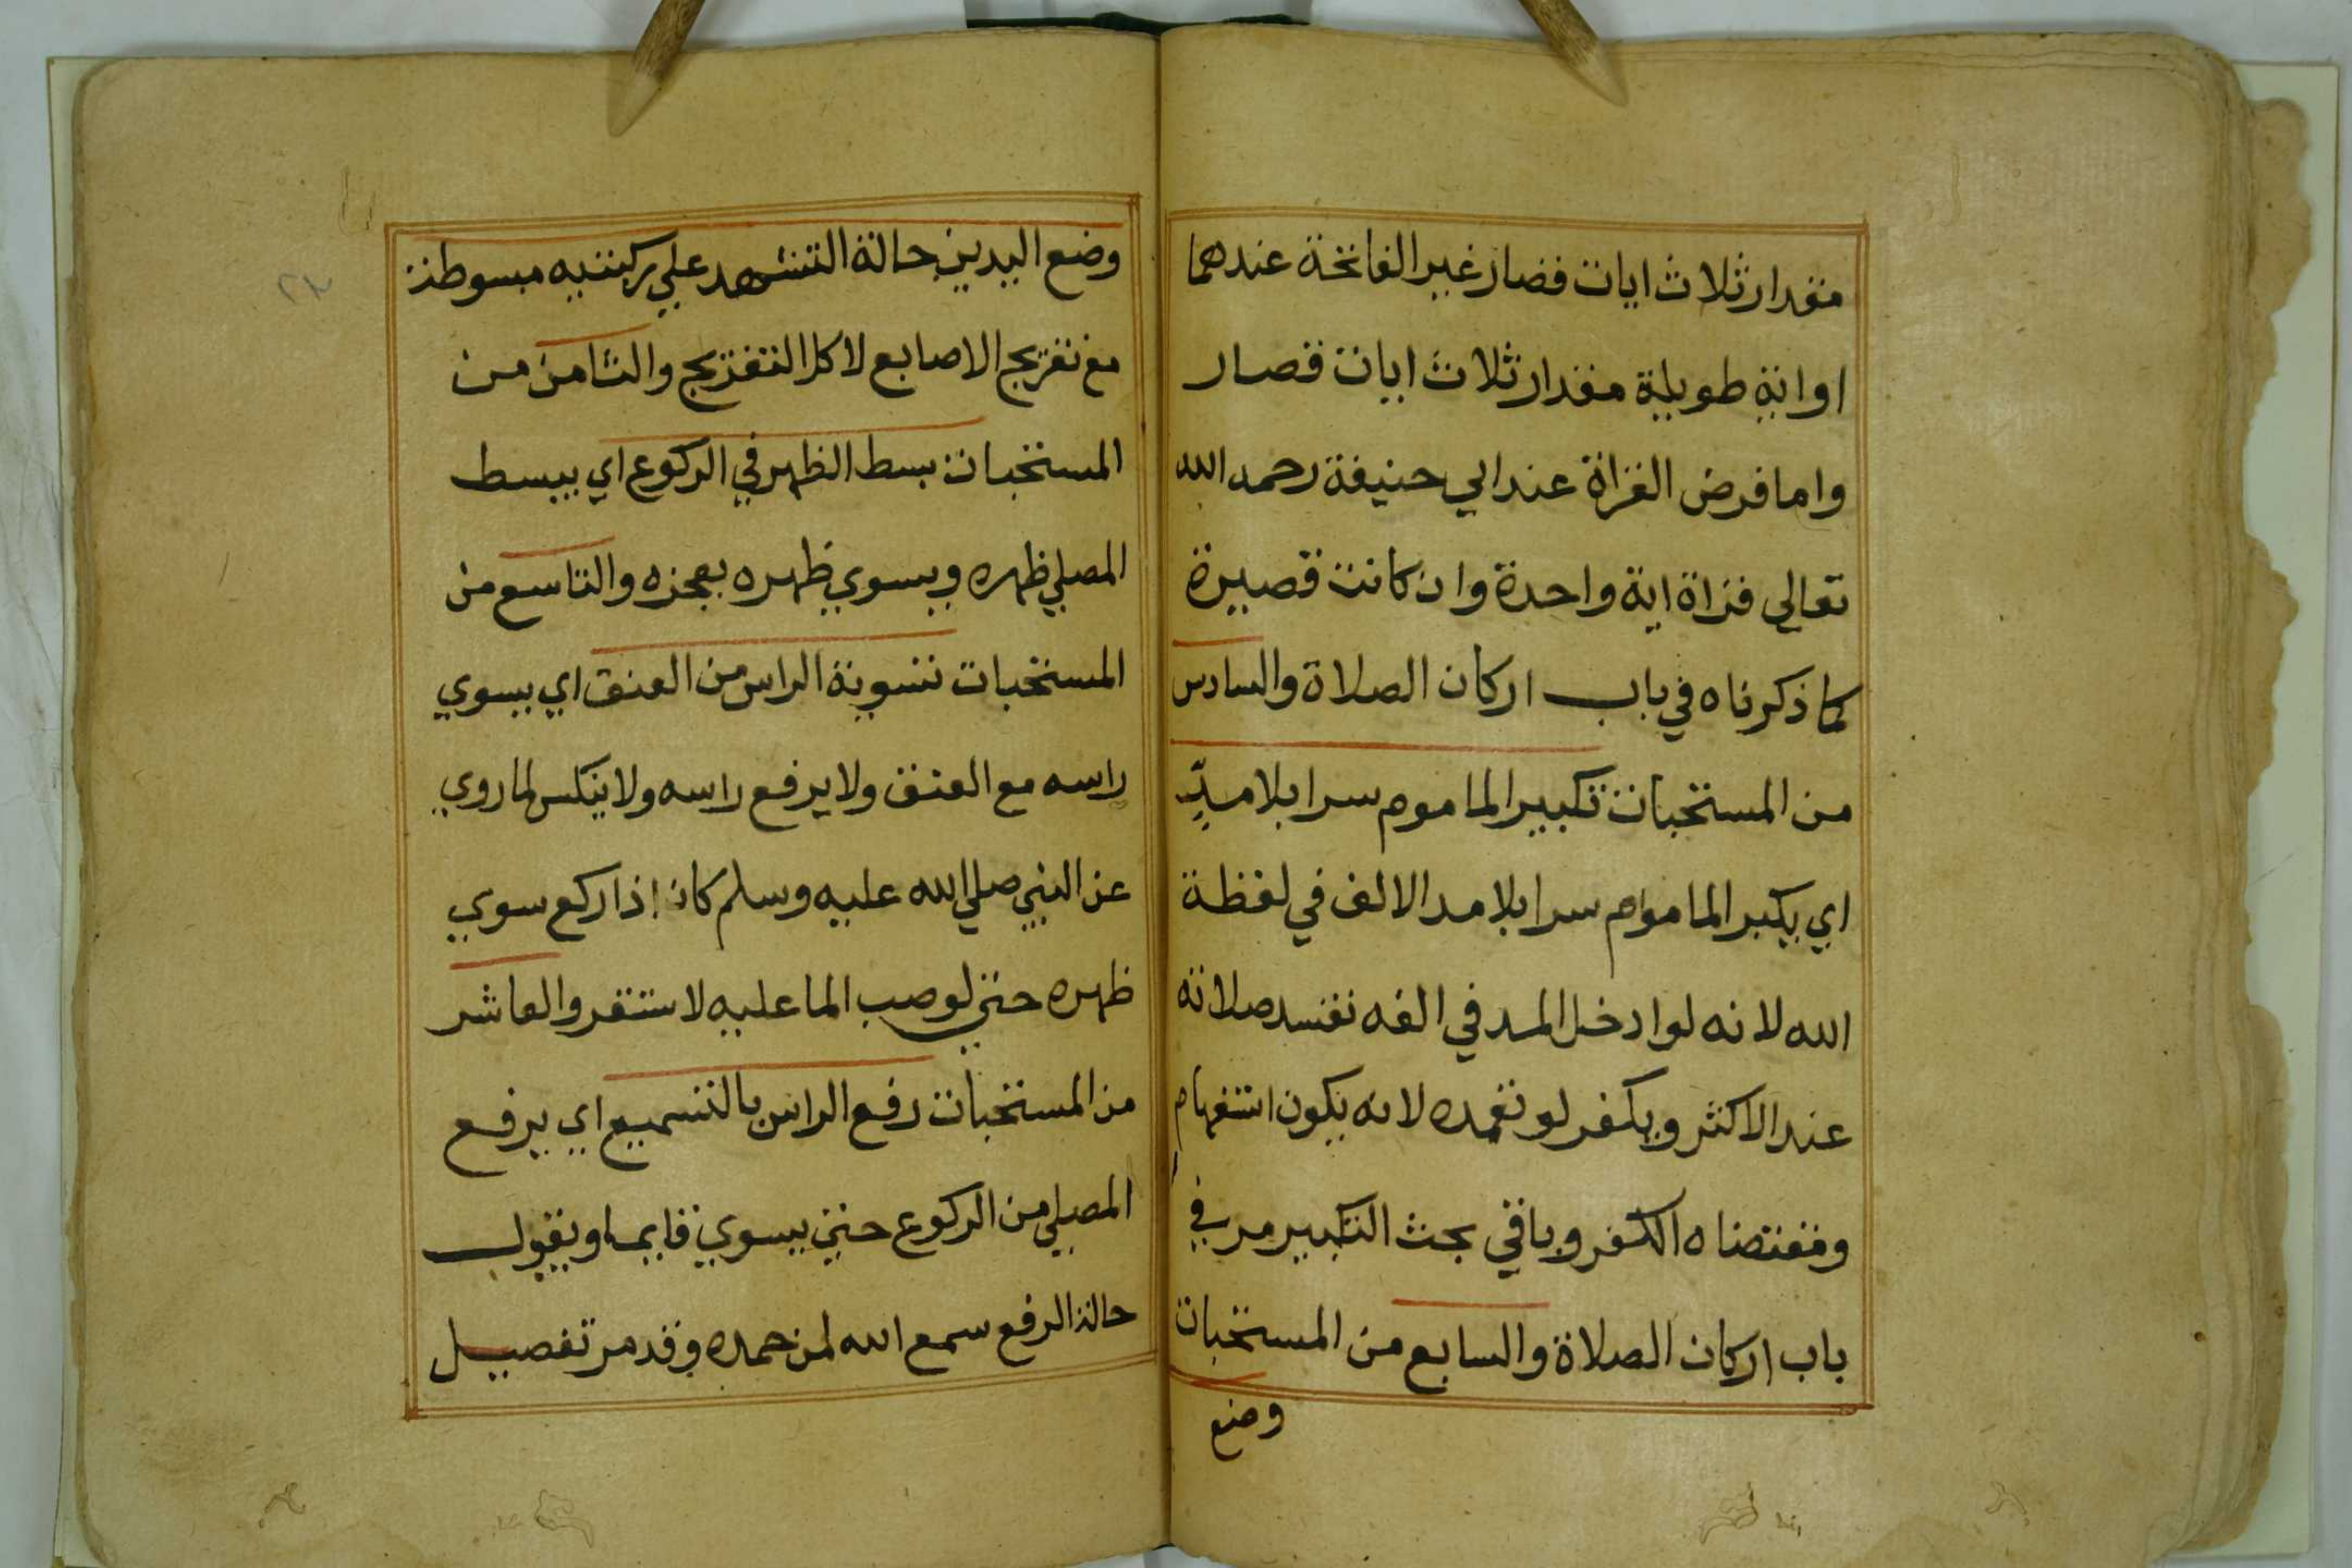 مقدار ثلاث ايات قصار غير الفاتحة عندهما
او اية طويلة مقدار ثلاث ايات قصار
واما فرض القراة عند ابي حنيفة رحمه الله
تعالي قراة اية واحدة وان كانت قصيرة
كما ذكرناه في باب اركان الصلاة والسادس
من المستحبات تكبير الماموم سرا بلا مدّ
اي يكبر الماموم سرا بلا مد الالف في لفظة
الله لانه لو ادخل المد في الفه تفسد صلاته
عند الاكثر ويكفر لو تعمده لانه يكون استفهام
ومقتضاه الكفر وباقي بحث التكبير مر في
باب اركان الصلاة والسابع من المستحبات
وضع
وضع اليدين حالة التشهد علي ركبتيه مبسوطة
مع تفريج الاصابع لا كل التفريج والثامن من
المستحبات بسط الظهر في الركوع اي يبسط
المصلي ظهره ويسوي ظهره بعجزه والتاسع من
المستحبات تسوية الراس من العنق اي يسوي
راسه مع العنق ولا يرفع راسه ولا ينكس لما روي
عن النبي صلي الله عليه وسلم كان اذا ركع سوي
ظهره حتي لو صب الما عليه لاستقر والعاشر
من المستحبات رفع الراس بالتسميع اي يرفع
المصلي من الركوع حتي يسوي قايما ويقول
حالة الرفع سمع الله لمن حمده وقد مر تفصيل